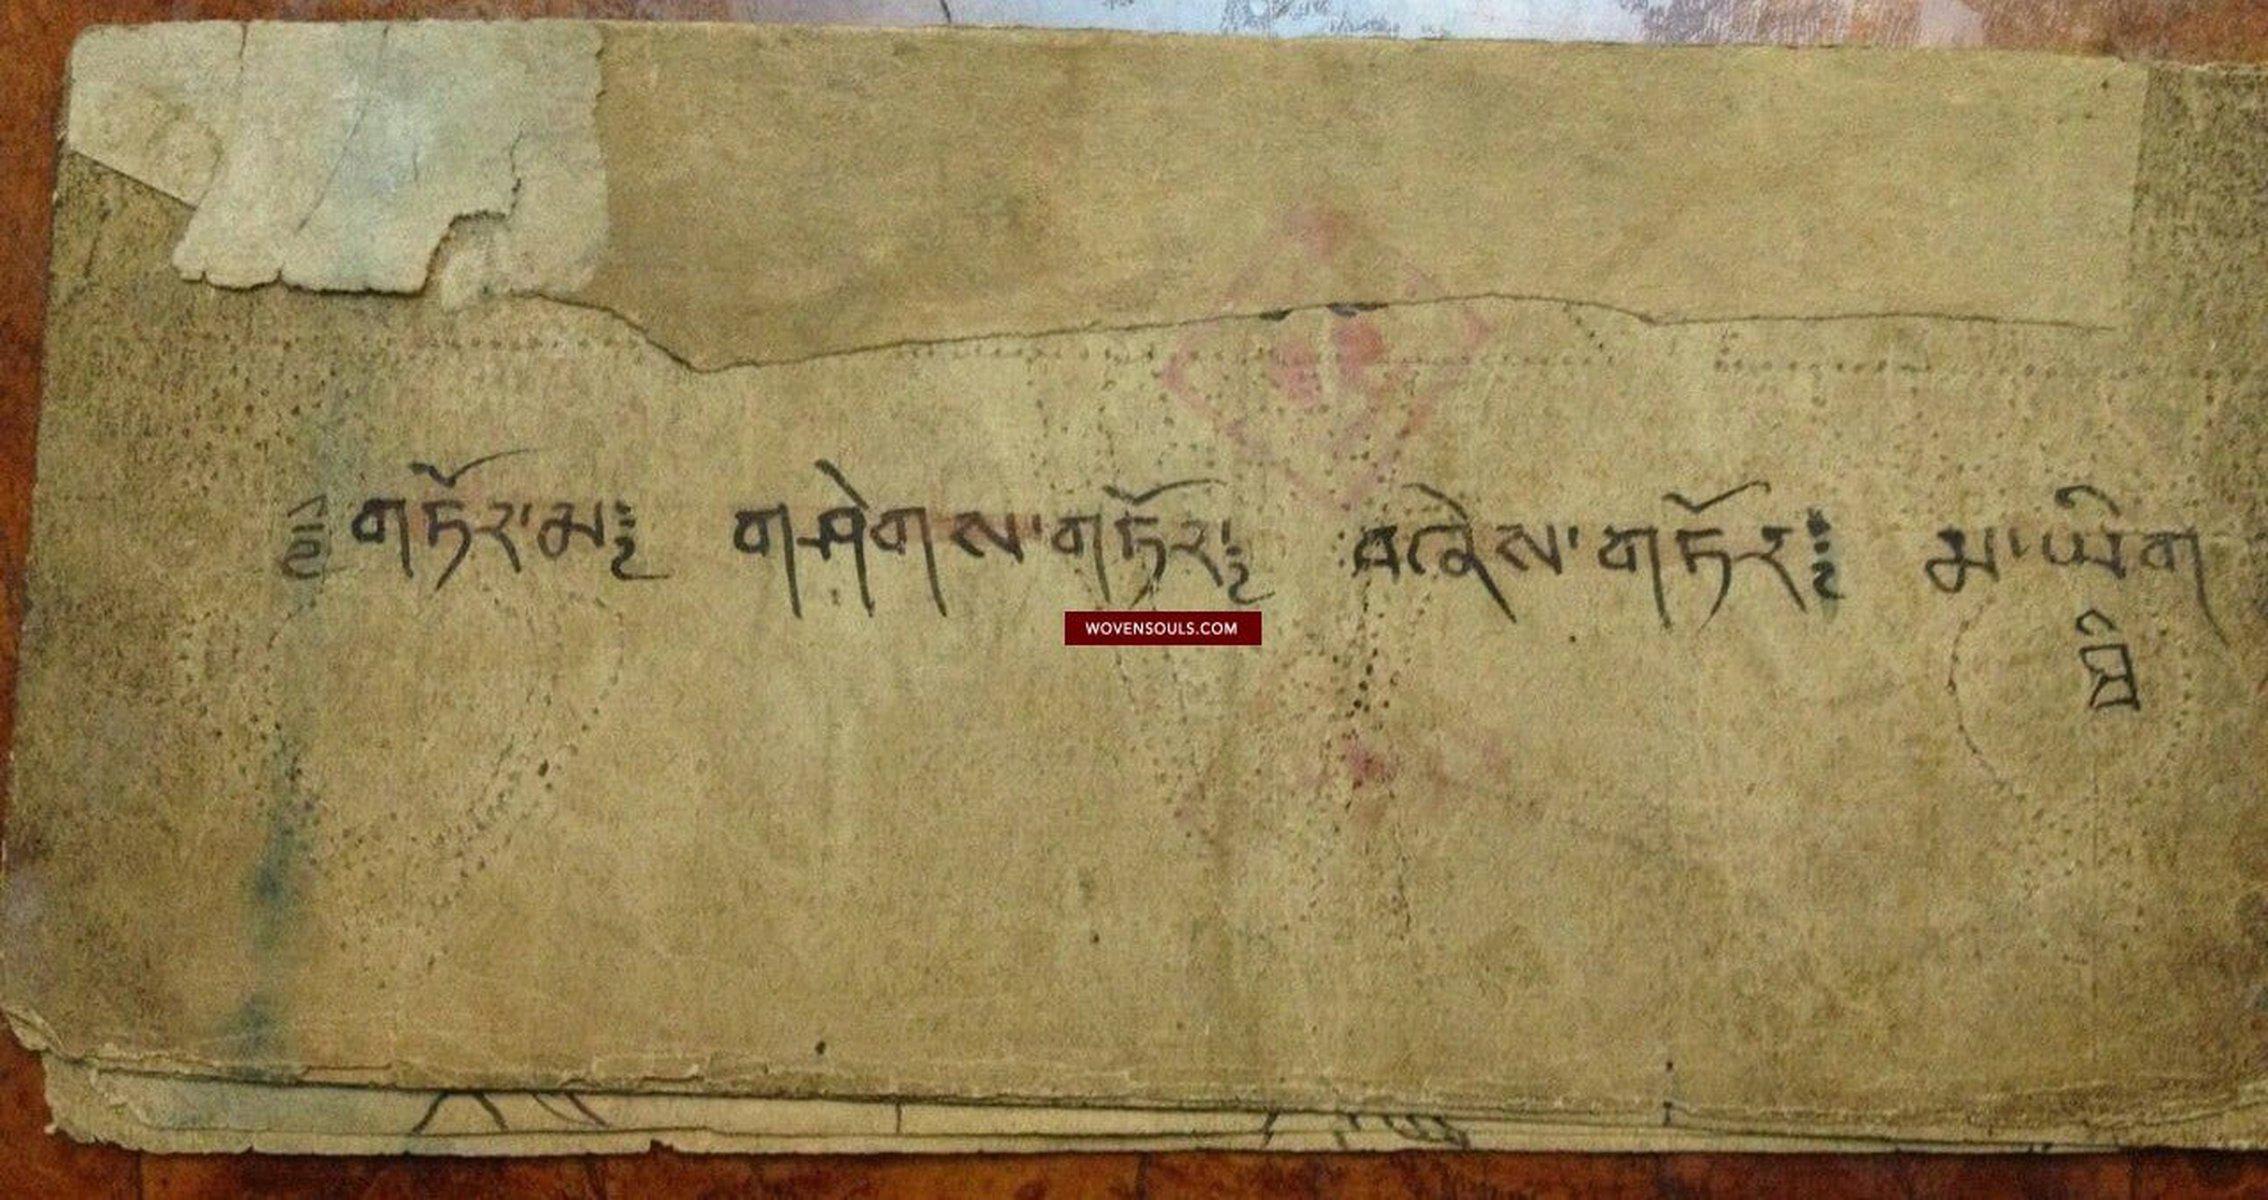 ༈ གཏོར་མ༔ གཤེགས་གཏོར༔ བརྫེས་གཏོར༔ མ་ཡིག
WOVENSOULS.COM